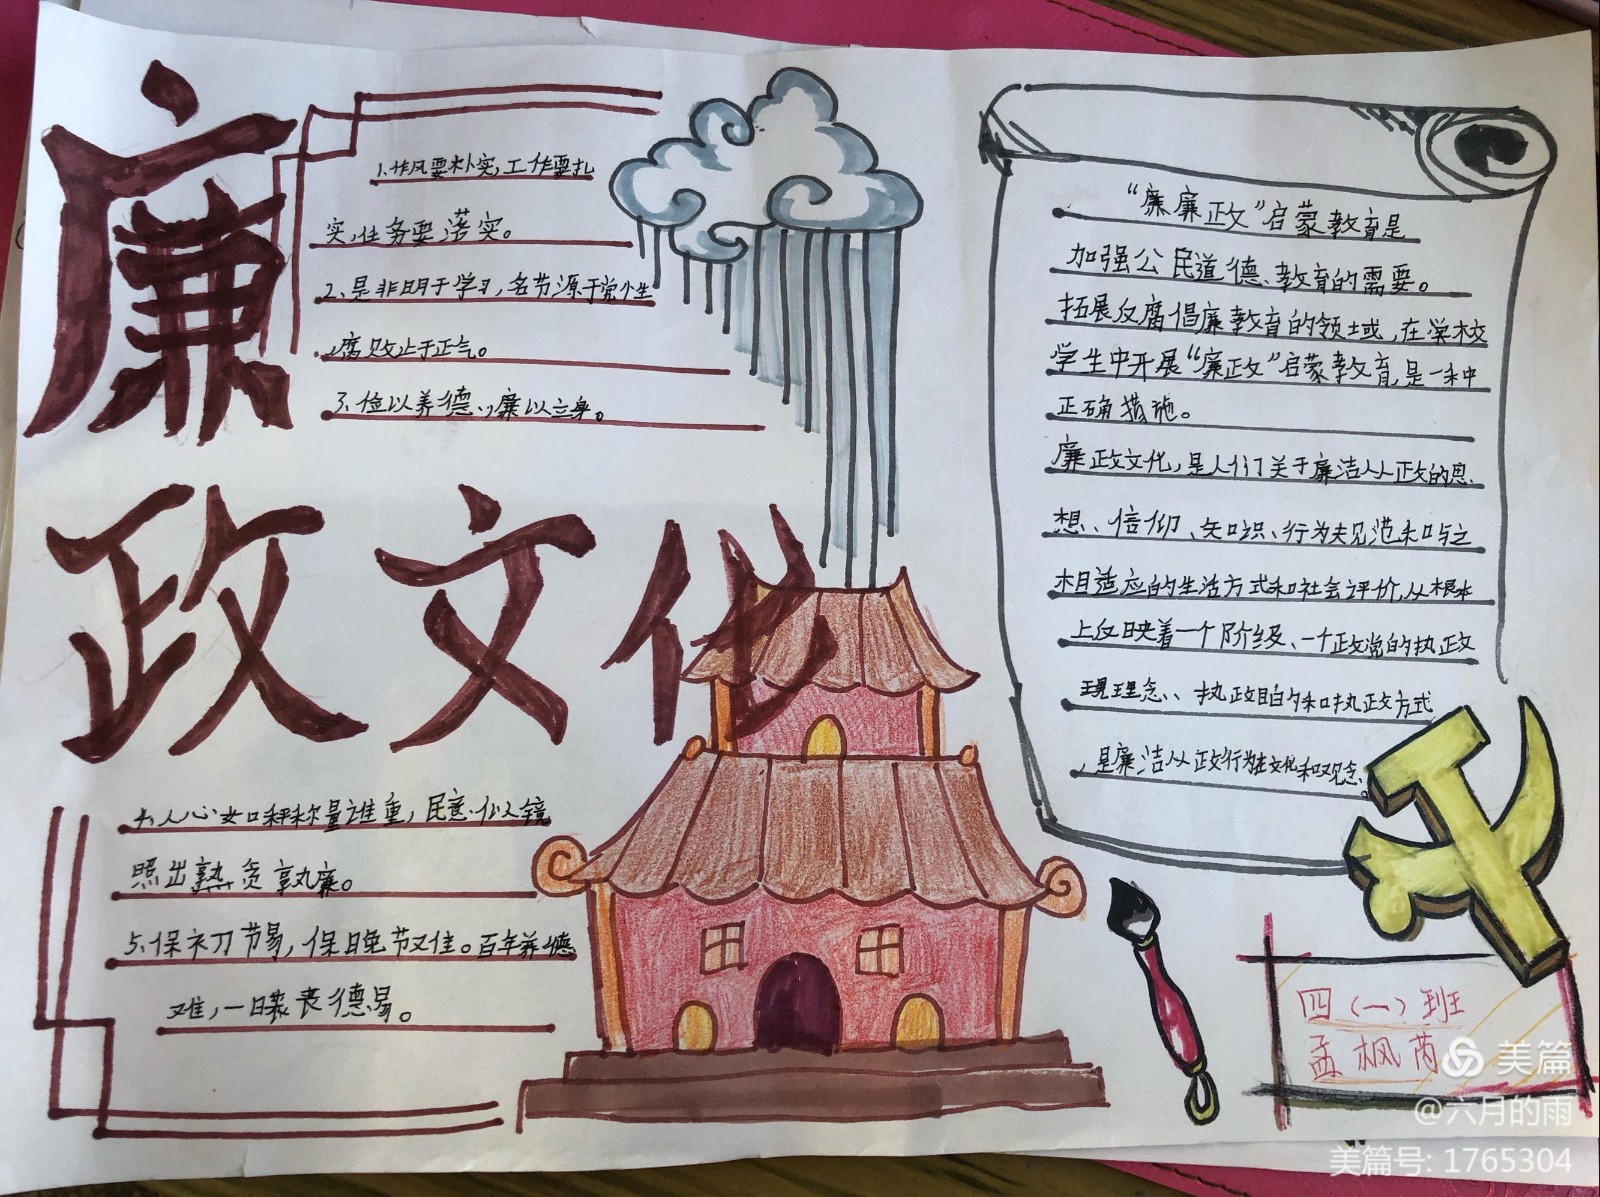 廉
政文化
1.作风要朴实,工作要扎
实,任务要落实。
2、是非明于学习,名节源于党性
,腐败止于正气。
3、位以养德,廉以立身。
4、人心如秤称量谁重,民意似镜
照出熟贪孰廉。
5、保初节易,保晚节难。百年养德
难,一日丧德易。
“廉廉政”启蒙教育是
加强公民道德、教育的需要。
拓展反腐倡廉教育的领域,在学校
学生中开展“廉政”启蒙教育,是一种
正确措施。
廉政文化,是人们关于廉洁从政的思
想、信仰、知识、行为规范和与之
相适应的生活方式和社会评价,从根本
上反映着一个阶级、一个政党的执政
理念、执政目的和执政方式
,是廉洁从政行为在文化和观念
四(一)班
孟枫芮
美篇
@六月的雨
美篇号: 1765304